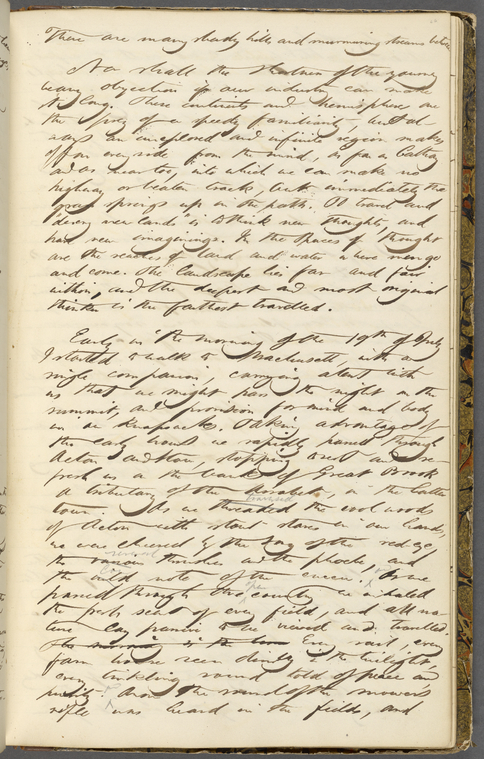 There are many shady hills and murmuring streams between
Nor shall the shallowness of the young
in any objection to our industry can make
its long. These continents and hemispheres are
the prey of a speedy familiarity, but al
ways an unexplored and infinite region makes
off on every side from the mind, as far as Cathay
and as near too, into which we can make no
highway or beaten track, but immediately the
grass springs up in the path. To travel and
"descry new lands" is to think new thoughts, and
have new imaginings. In the spaces of thought
are the reaches of land and water where men go
and come. The landscape lies far and fair
within, and the deepest and most original
thinker is the farthest travelled.
Early in the morning of the 19th of July
I started to walk to Wachusett, with a
single companion, carrying a tent with
us that we might pass the night on the
summit, and provision for mind and body
in a knapsack. Taking advantage of
the early hours we rapidly passed through
Acton and Stow, stopping to rest and re
fresh us on the bank of Great Brook
a tributary of the Assabet, in the latter
town. As we
traversed
threaded the cool woods
of Acton with stout staves in our hands,
we were cheered by the song of the red eye,
the
several
various thrushes and the phoebe, and
the wild note of the cuccoo. As we
passed through the
open
country we inhaled
the fresh scent of every field, and all na
ture lay passive to be viewed and travelled.
The morning in the town Every rail, every
farm house seen dimly in the twilight
every tinkling sound told of peace and
purity. Anon the sound of the mower's
rifle was heard in the fields, and